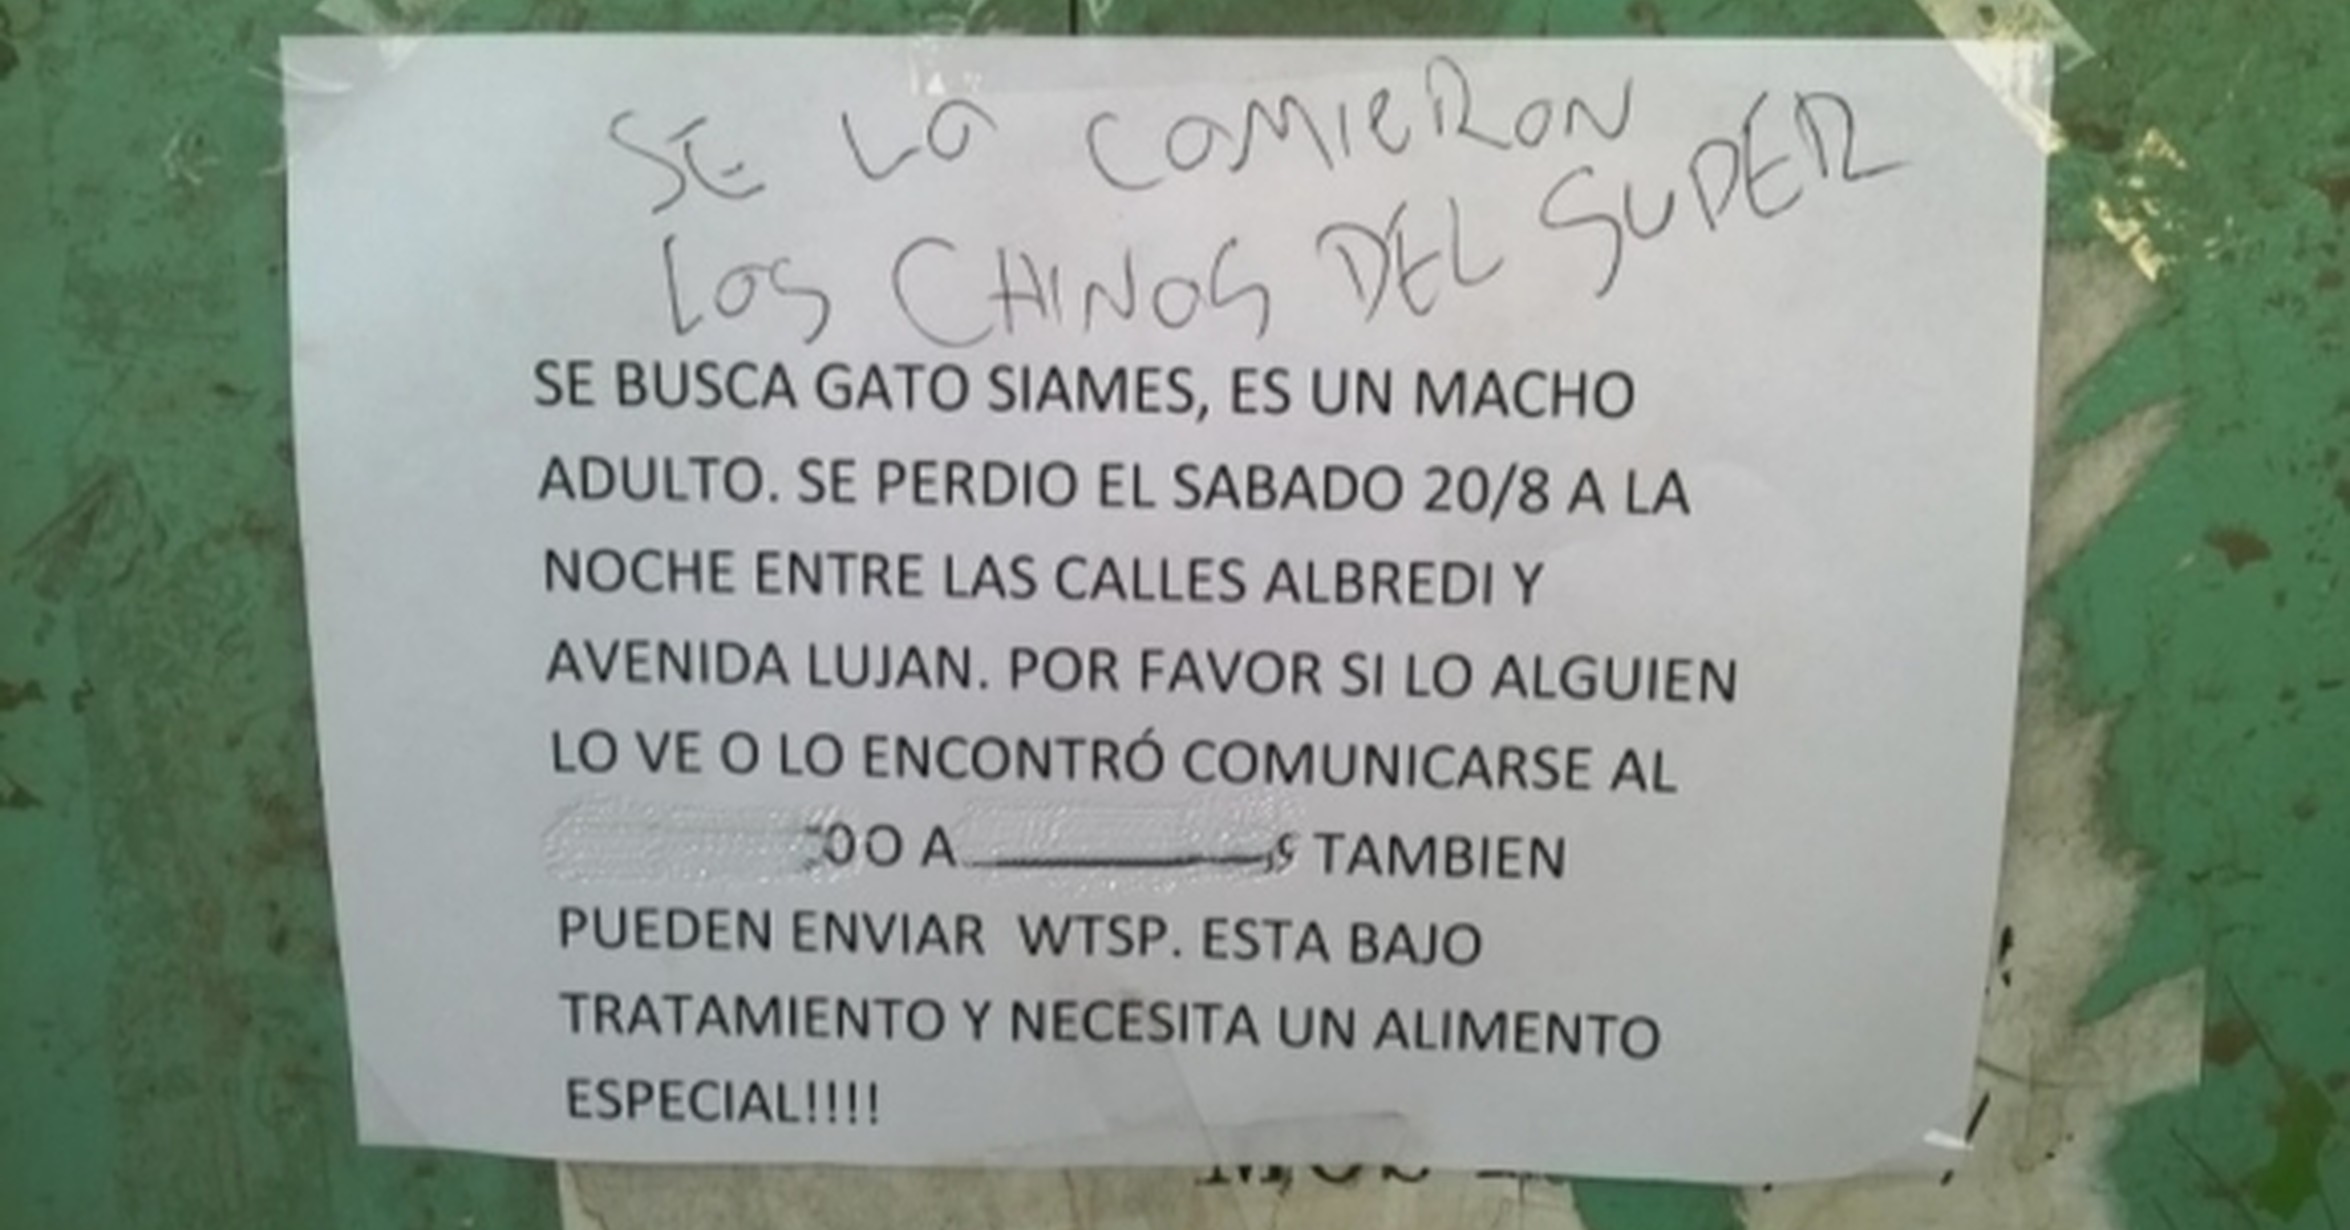 SE LA COMIERON
LOS CHINOS DEL SUPER
SE BUSCA GATO SIAMES, ES UN MACHO
ADULTO. SE PERDIO EL SABADO 20/8 A LA
NOCHE ENTRE LAS CALLES ALBREDI Y
AVENIDA LUJAN. POR FAVOR SI LO ALGUIEN
LO VE O LO ENCONTRÓ COMUNICARSE AL
0 O A TAMBIEN
PUEDEN ENVIAR WTSP. ESTA BAJO
TRATAMIENTO Y NECESITA UN ALIMENTO
ESPECIAL!!!!